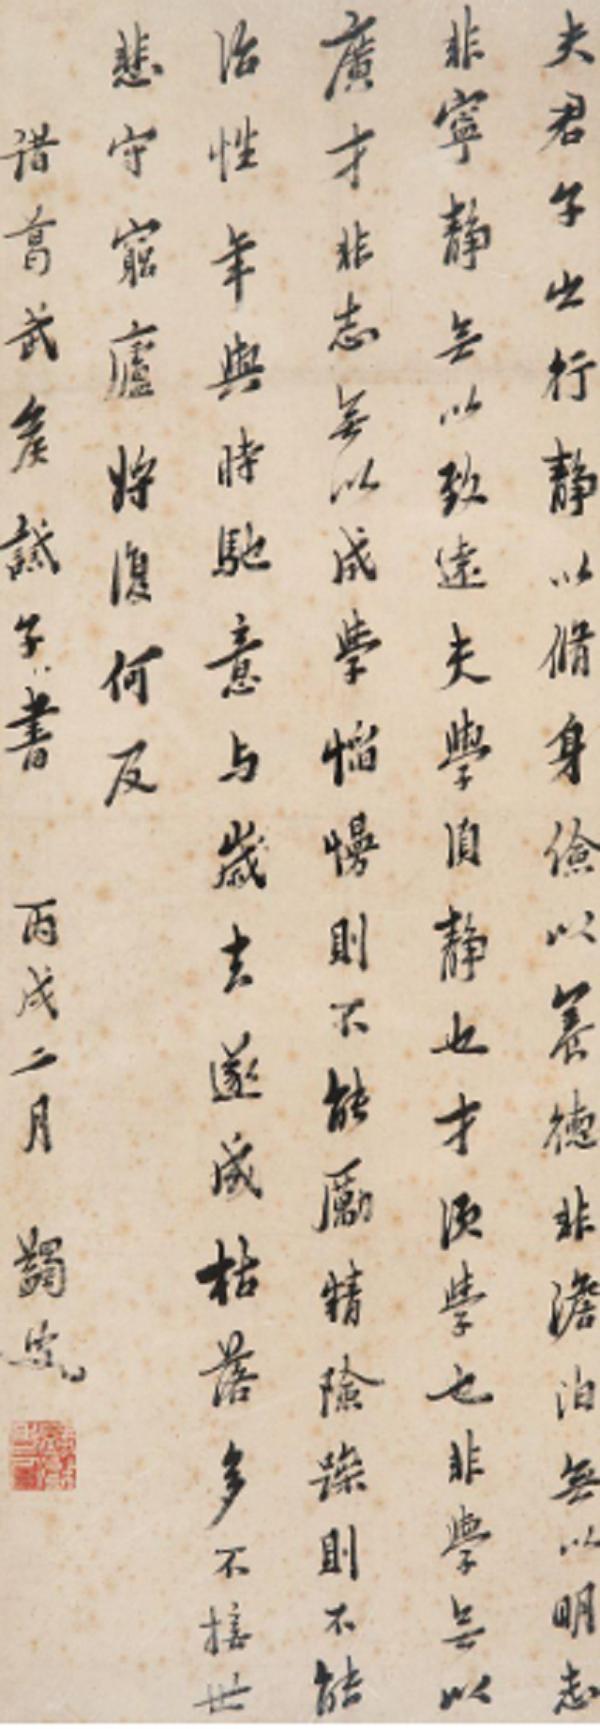 夫君子之行靜以脩身儉以養德非澹泊無以明志
非寧靜無以致遠夫學須靜也才須學也非學無以
廣才非志無以成學慆慢則不能勵精險躁則不能
治性年與時馳意与歲去遂成枯落多不接世
悲守窮廬將復何及
諸葛武矦誡子書 丙戌二月 蠲叟